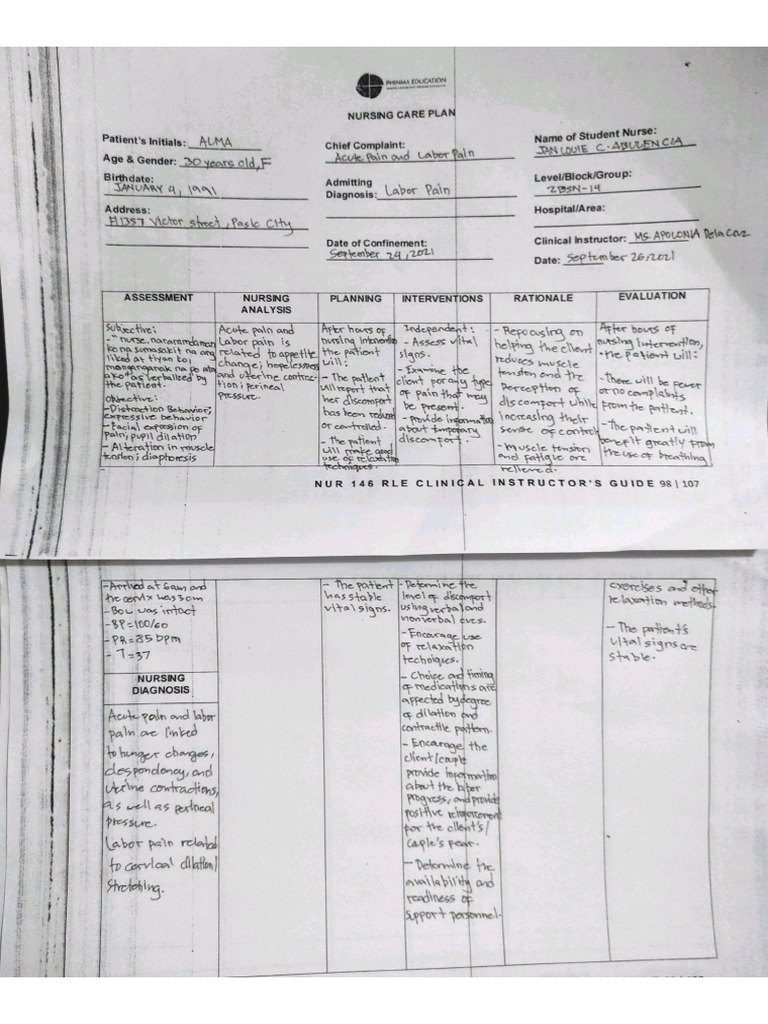 PHINMA EDUCATION
NURSING CARE PLAN
Patient's Initials: ALMA
Age & Gender: 30 years old, F
Birthdate:
JANUARY 4, 1991
Address:
#1357 Victor street, Pasic City
Chief Complaint:
Acute Pain and Labor Pain
Admitting
Diagnosis: Labor Pain
Date of Confinement:
September 24, 2021
Name of Student Nurse:
JAN LOUIE C. ABULENCIA
Level/Block/Group:
2BSN-14
Hospital/Area:
Clinical Instructor: MS. APOLONIA Dela Cruz
Date: September 26, 2021
ASSESSMENT
Subjective:
- "nurse, nararamdaman
ko na sumasakit na ang
likod at tiyan ko,
manganganak na po ata
ako" as verbalized by
the patient.
Objective:
- Distraction Behavior;
expressive behavior
- Facial expression of
pain; pupil dilation
- Alteration in muscle
tension; diaphoresis
NURSING
ANALYSIS
Acute pain and
Labor pain is
related to appetite
change; hopelessness
and uterine contrac-
tion; perineal
pressure.
PLANNING
After hours of
nursing intervention
the patient
will:
- The patient
will report that
her discomfort
has been reduced
or controlled.
- The patient
will make good
use of relaxation
techniques.
INTERVENTIONS
Independent:
- Assess vital
signs.
- Examine the
client for any type
of pain that may
be present.
- Provide information
about temporary
discomfort.
RATIONALE
- Refocusing on
helping the client
reduces muscle
tension and the
perception of
discomfort while
increasing their
sense of control
- Muscle tension
and fatigue are
relieved.
EVALUATION
After hours of
nursing intervention,
the patient will:
- There will be fewer
or no complaints
from the patient.
- The patient will
benefit greatly from
the use of breathing
NUR 146 RLE CLINICAL INSTRUCTOR'S GUIDE 98 | 107
- Arrived at 6am and
the cervix was 3cm
- BOW was intact
- BP=100/60
- PR=85 bpm
- T=37
NURSING
DIAGNOSIS
Acute pain and labor
pain are linked
to hunger changes,
despondency, and
uterine contractions,
as well as perineal
pressure.
Labor pain related
to cervical dilation/
stretching.
- The patient
has stable
vital signs.
- Determine the
level of discomfort
using verbal and
nonverbal cues.
- Encourage use
of relaxation
techniques.
- Choice and timing
of medications are
affected by degree
of dilation and
contractile pattern.
- Encourage the
client/couple
provide information
about the labor
progress, and provide
positive reinforcement
for the client's/
couple's fear.
- Determine the
availability and
readiness of
support personnel.
exercises and other
relaxation methods.
- The patient's
vital signs are
stable.